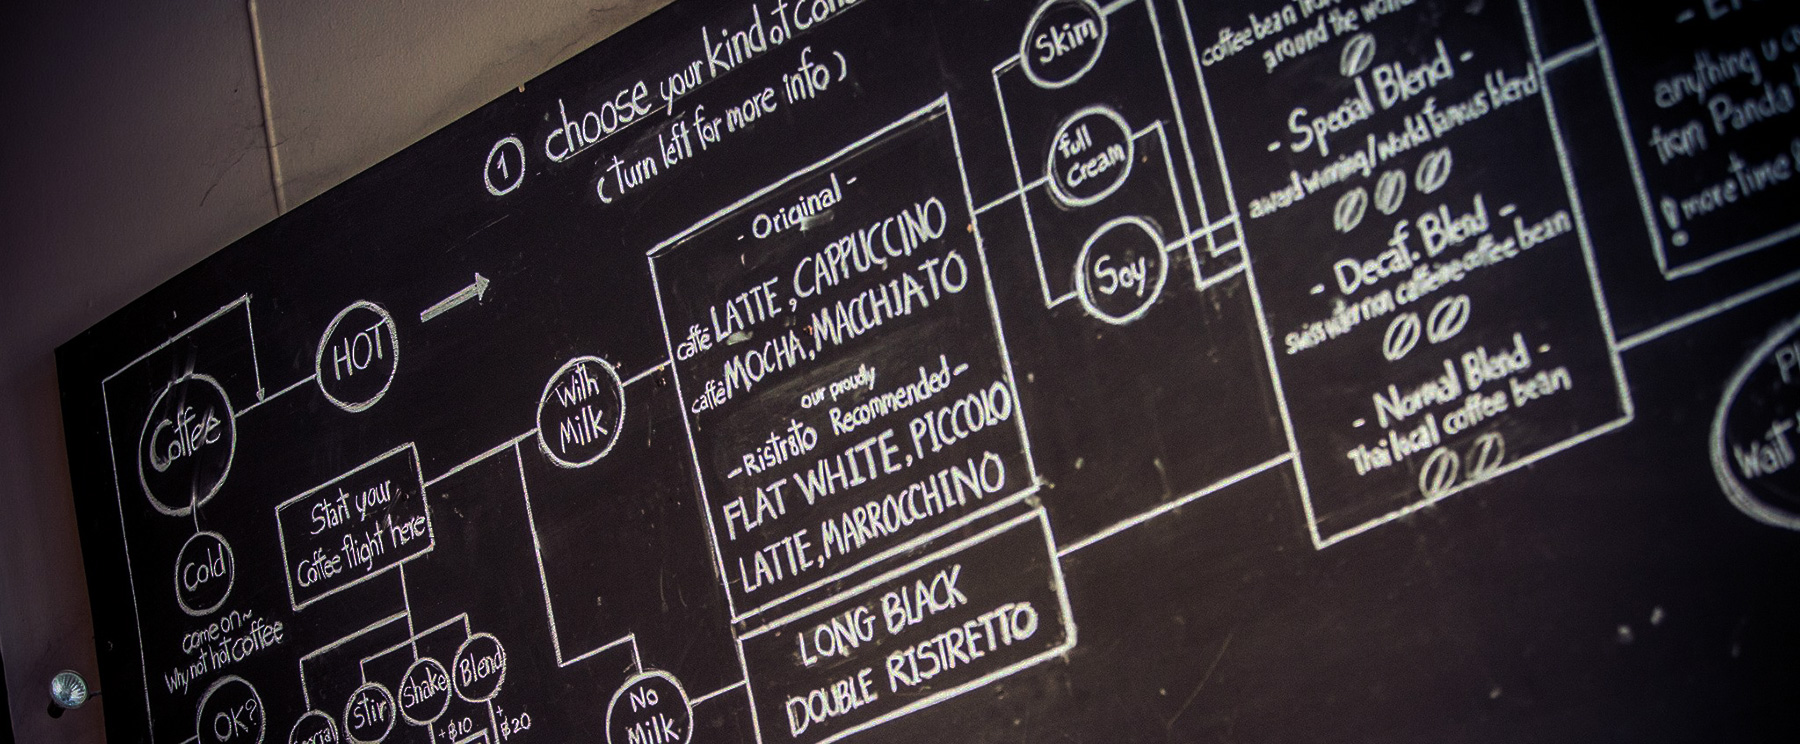 ① choose your kind of
(Turn left for more info)
Coffee
HOT
cold
come on~
Why not hot coffee
OK?
Start your
Coffee flight here
Stir
Shake
+฿10
Blend
+฿20
With
Milk
No
Milk
- Original -
caffè LATTE, CAPPUCCINO
caffè MOCHA, MACCHIATO
our proudly
-Ristrèto Recommended-
FLAT WHITE, PICCOLO
LATTE, MARROCCHINO
LONG BLACK
DOUBLE RISTRETTO
Skim
full
Cream
Soy
coffee bean from
around the world
- Special Blend -
award winning/world famous blend
- Decaf. Blend -
swiss water non caffeine coffee bean
- Normal Blend -
Thai local coffee bean
anything u
from Panda
! more time
Wait